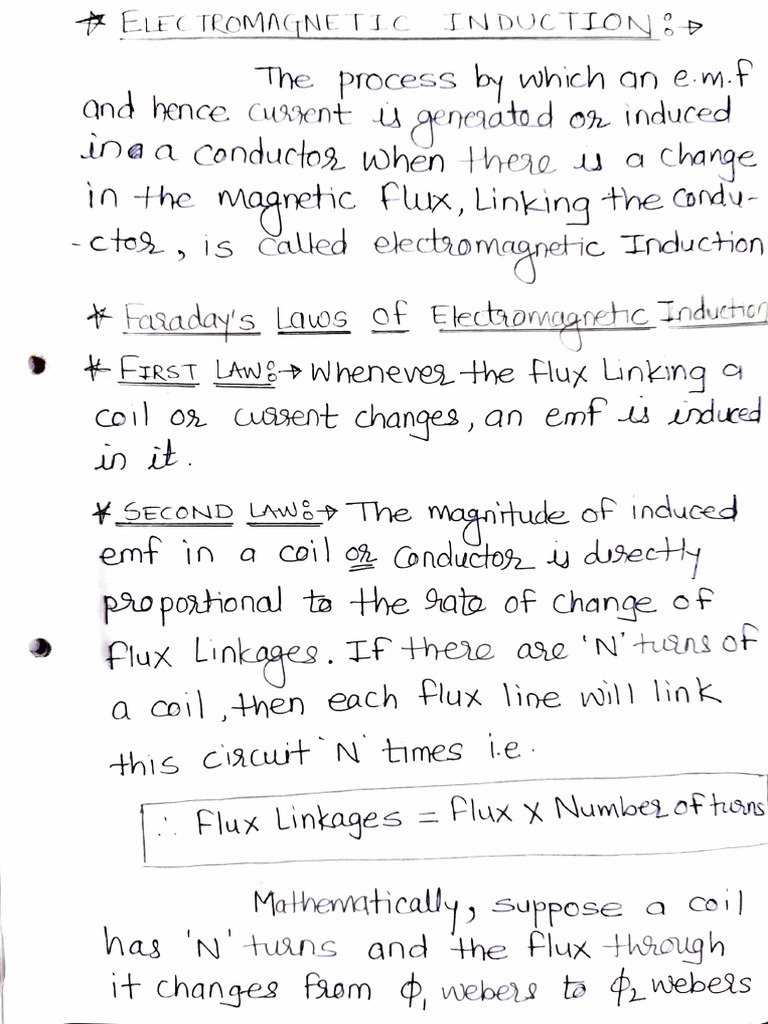 * ELECTROMAGNETIC INDUCTION:→
The process by which an e.m.f
and hence current is generated or induced
in a conductor when there is a change
in the magnetic flux, Linking the condu-
-ctor, is called electromagnetic Induction
* Faraday's Laws of Electromagnetic Induction
* FIRST LAW:→ Whenever the flux Linking a
coil or current changes, an emf is induced
in it.
* SECOND LAW:→ The magnitude of induced
emf in a coil or conductor is directly
proportional to the rate of change of
flux Linkages. If there are 'N' turns of
a coil, then each flux line will link
this circuit 'N' times i.e.
∴ Flux Linkages = Flux x Number of turns
Mathematically, suppose a coil
has 'N' turns and the flux through
it changes from ϕ₁ webers to ϕ₂ webers